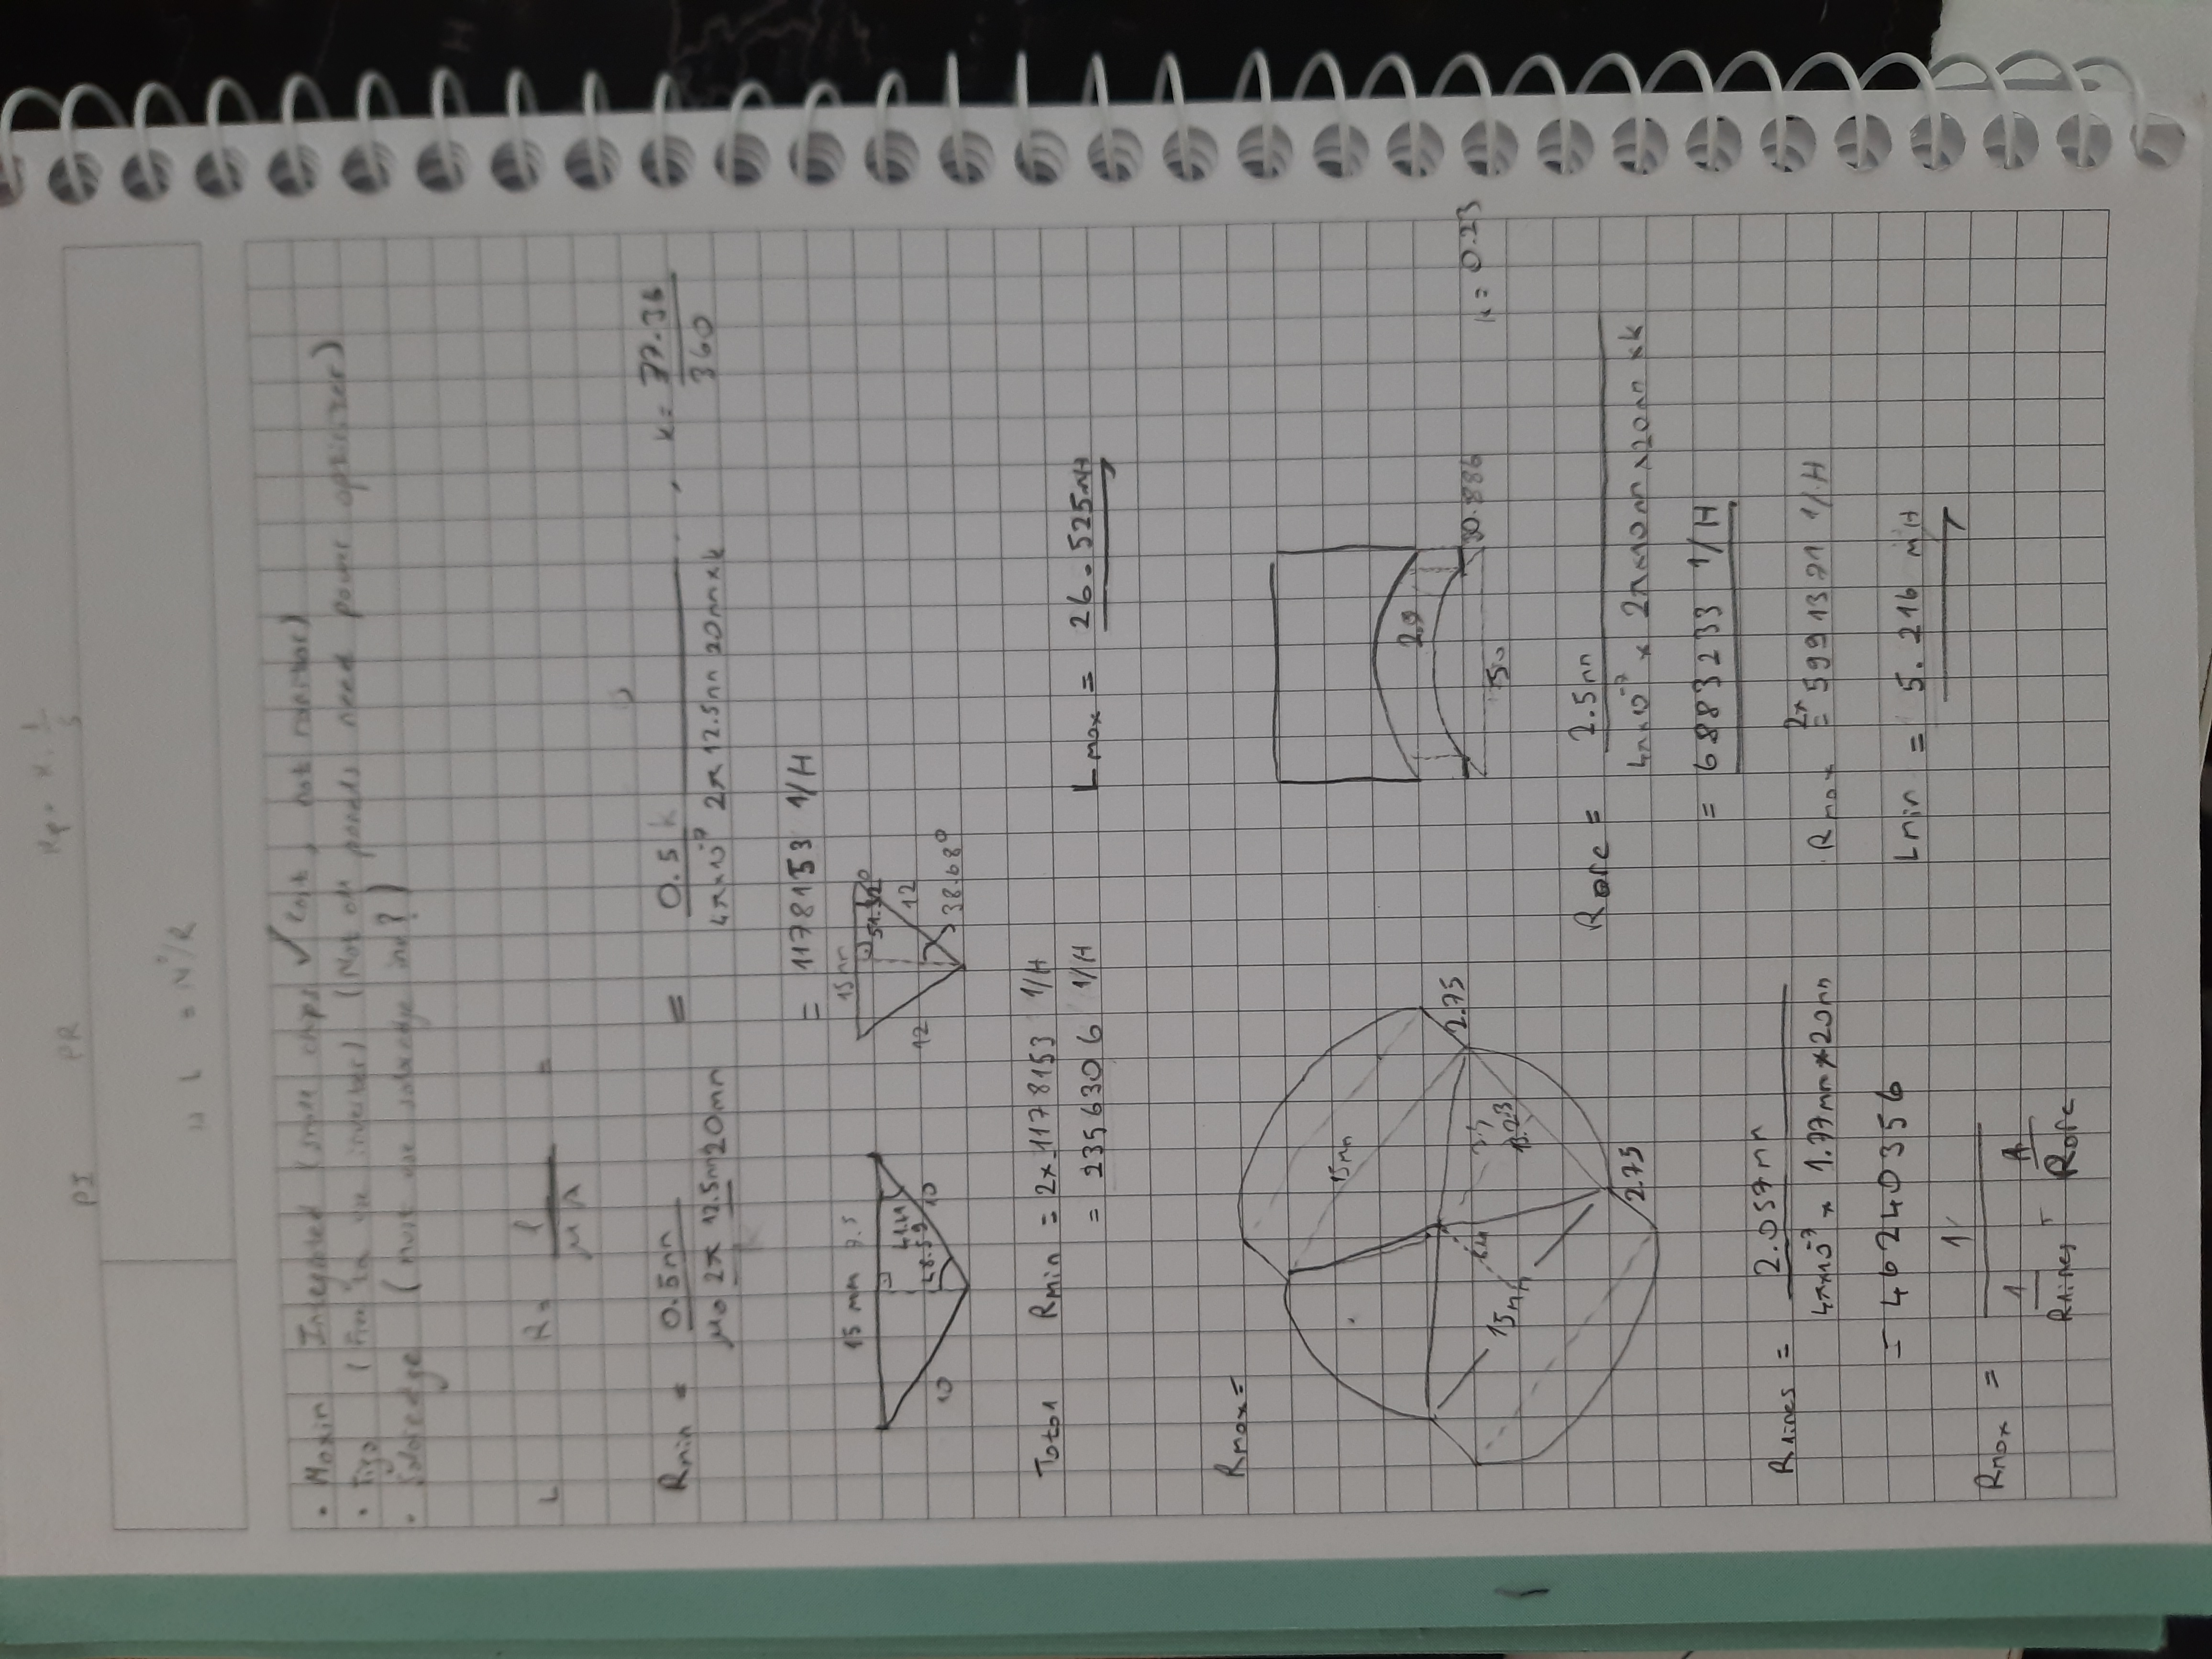 PI PR Kp = K. 1/5
L = N²/R
• Maxin Integrated (small chips ✓ cost, hot
• Tigo (Free to use invertor) (Not all panels need power optimizer)
• Solaredge (must use solaredge inv?)
L R = l / μ A =
Rmin = 0.5mm / μ0 2π 12.5mm 20mm = 0.5 / 4π×10⁻⁷ 2π 12.5mm 20mm×k , k = 77.36 / 360
= 1178153 1/H
15 mm 7.5 15mm
41.41 51.32°
48.59 10 12 12
10 38.68°
Total Rmin = 2×1178153 1/H
= 2356306 1/H Lmax = 26.525mH
Rmax =
15mm
2.9
2.75 30.886 k = 0.23
15mm 13.23 15
Rarc = 2.5mm / 4π×10⁻⁷ × 2π×10mm×20mm×k
2.75
= 6883233 1/H
Rlines = 2.057mm / 4π×10⁻⁷ × 1.77mm×20mm
Rmax 2x = 5991371 1/H
= 46240356
Lmin = 5.216 mH
Rmax = 1 / 1/Rlines + 1/Rarc